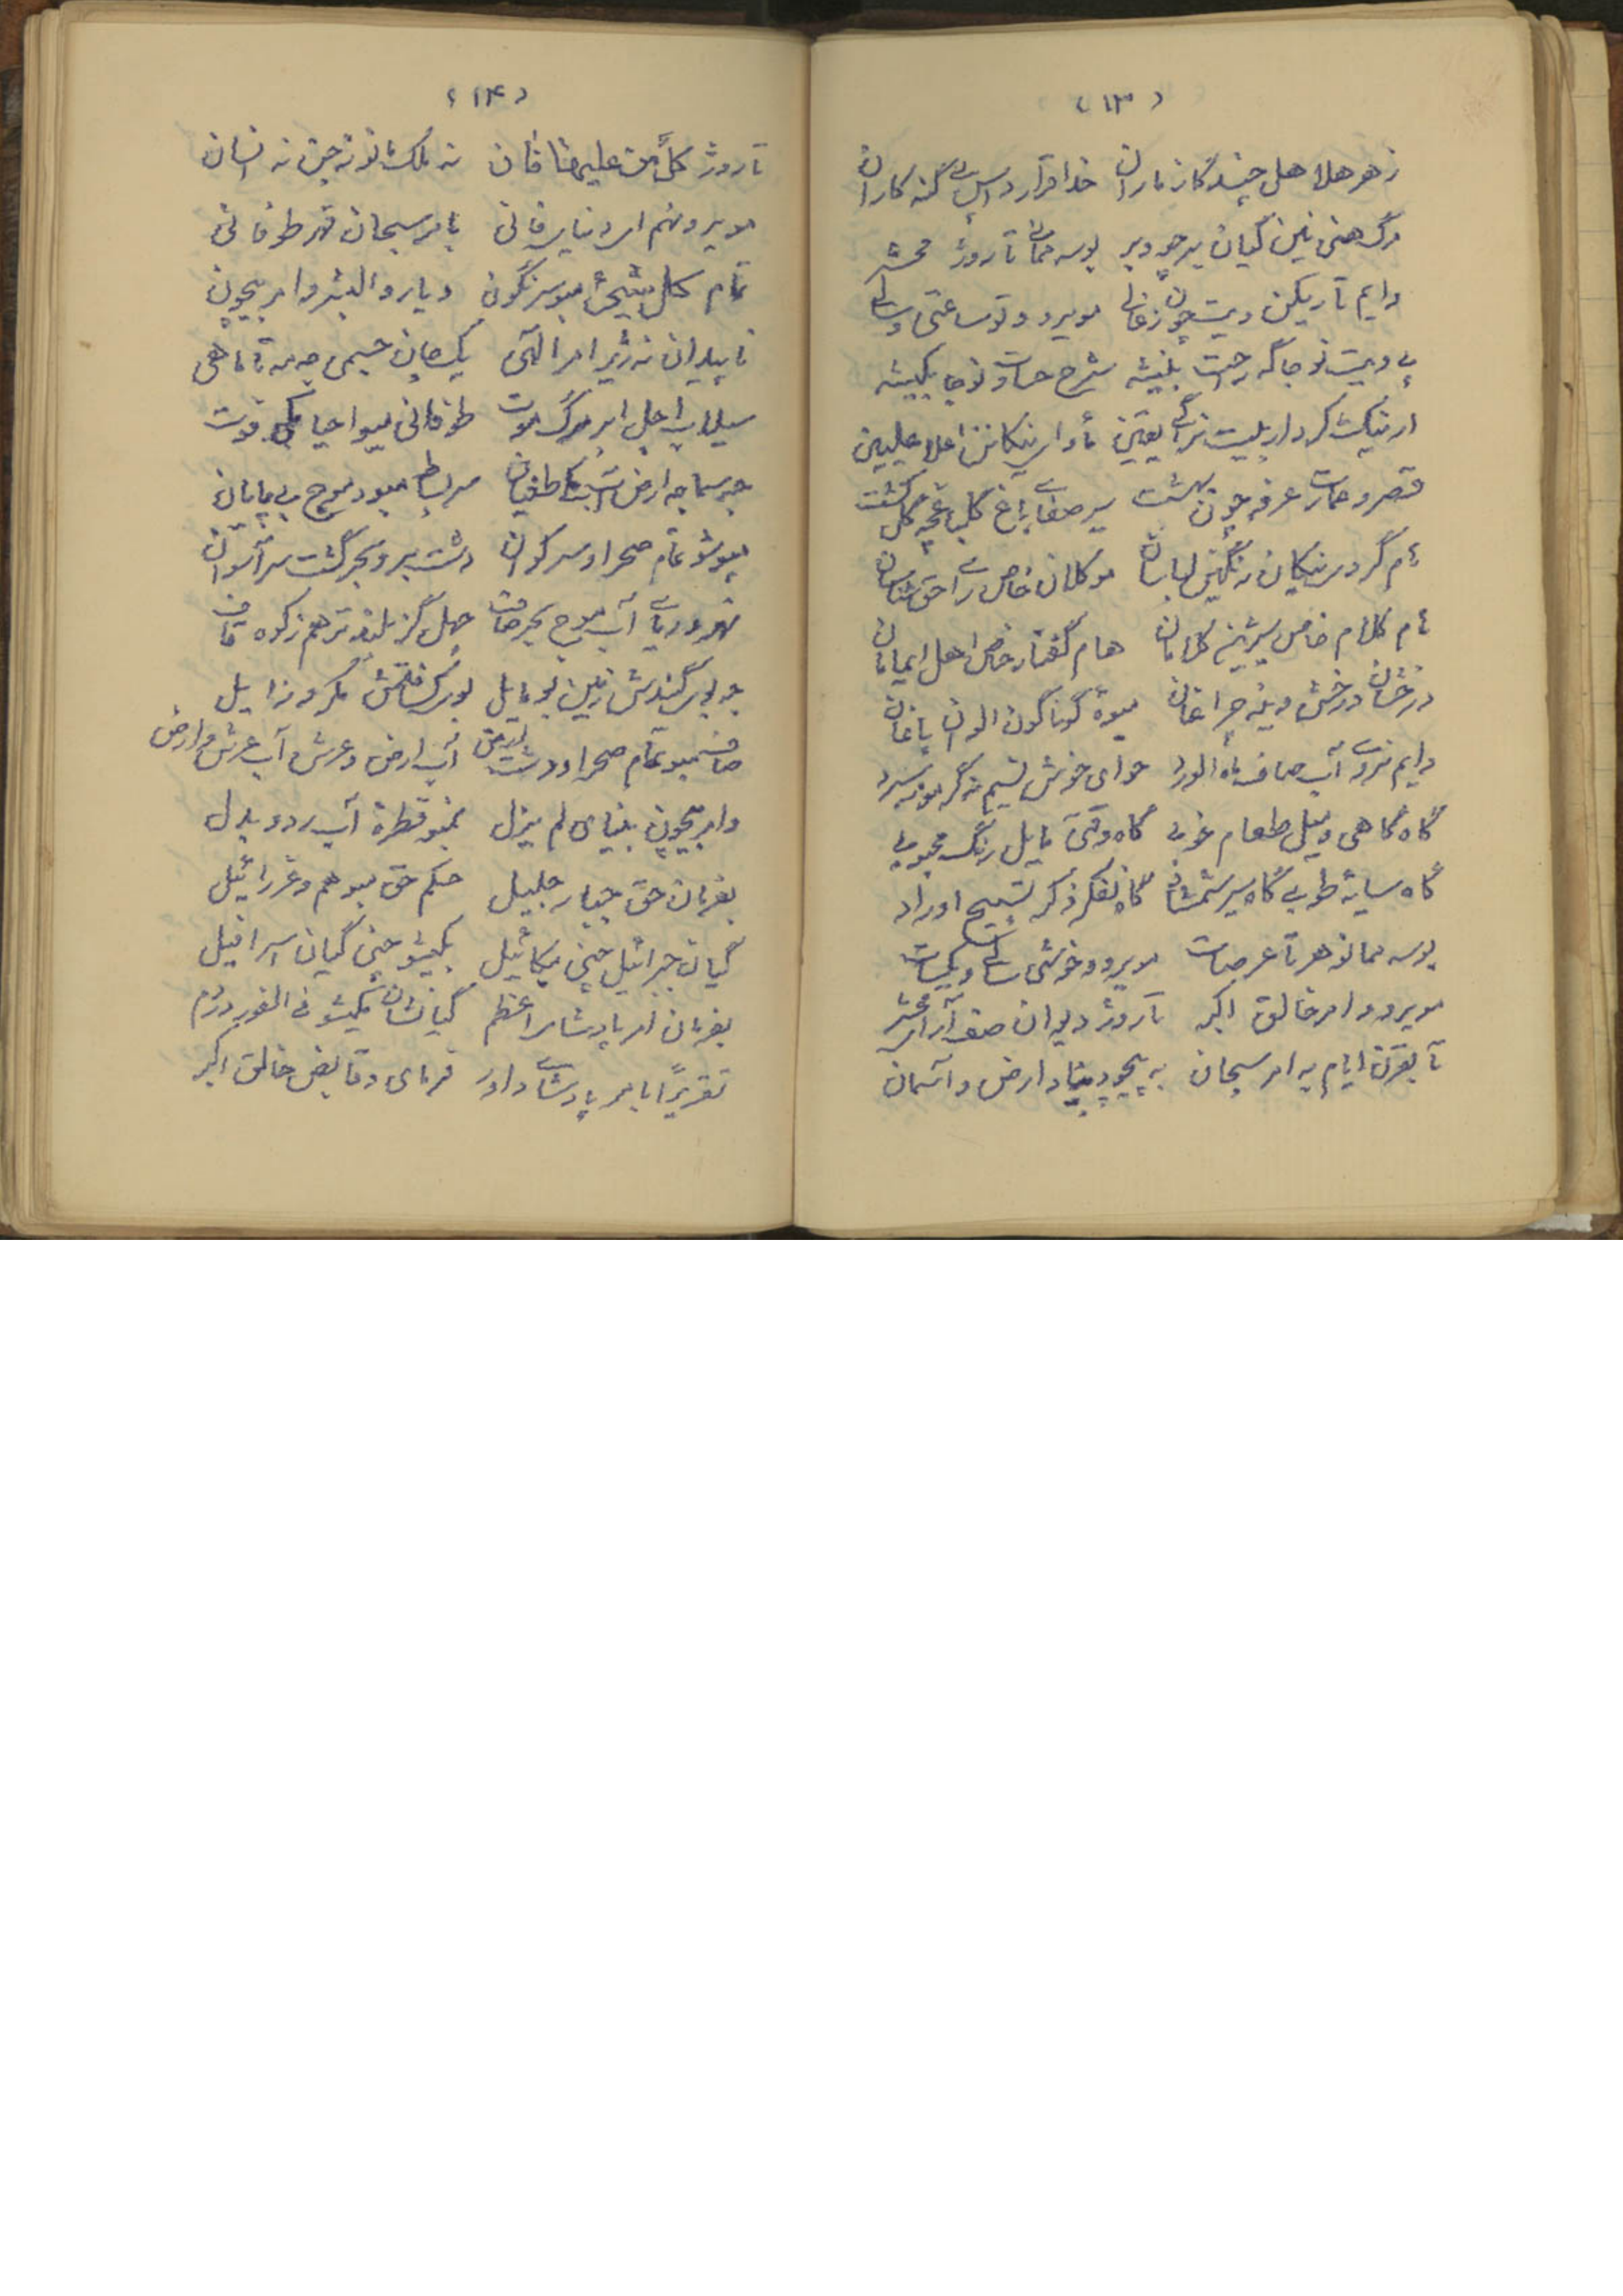 (۱۳)
زهر هلاهل چنید گاز ماران خدا قرار داس پی گنه کاران
مرگ هنی نین گیان بر جو دیر بوسه ممانی تا روژ محشر
دایم تاریکن ویت چون زغال مویرد و تو ساعتی و سالی
پی ویت نو جاگه رحمت بنیشه شرح حسات نو جا بکیشه
ار نیک کردار بلیت نرای یقین ماوای نیکانن اعلا علیین
قصر و عمارت عرفه چون بهشت سیر صفای باغ گلباغچه گل گشت
نام گرد نیکان رنگین لباسان موکلان خاص را حق شناسان
نام کلام خاص شیرین کلامان هام گفتار خاص اهل ایمانان
درخشان درخش وینه چراغان میوهٔ گوناگون الوان باغان
دایم نزدی آب صاف ماه الورد هوای خوش نسیم نه گرمو نه سرد
گاه گاهی و میل طعام خوبی گاه وقتی مایل رنگ محبوبی
گاه سایهٔ طوبی گاه سیر شمشاد گاه تفکر ذکر تسبیح اوراد
بوسه ممانو هر تا عرصات مویرو و خوشی سالی و یکسات
مویرو و امر خالق اکبر تا روژ دیوان صف آرای محشر
تا بقرن ایام به امر سبحان به پیچو بنیاد ارض و آسمان
(۱۴)
تا روژ کل من علیها فان نه ملک مانو نه جن نه انسان
مویرو نهم ای دنیای فانی بامر سبحان قهر طوفانی
تمام کل شیئ مبو سرنگون دیار و البشر و امر بیچون
ناپیدان نه ژیر امر الهی یک جان جسمی جه مه تا ماهی
سیلاب اجل ابر مرگ موت طوفانی میو احیا کی فوت
جه سما جه ارض آب طغیان سر بساط مبو و موج بی پایان
میوشو تمام صحرا و سرکوان دشت بر و بحر گشت سرآسوان
قهر دریای آب موج بحر صاف چهل گز بلندتر هم ز کوه قاف
جو بوی گندش زمین بو مایل بو کثافتش مکرو زایل
صاف مبو تمام صحرا و دشت زمین آب ارض و عرش و آب عرش و ارض
و امر بیچون بنیای لم یزل نمبو قطرهٔ آب رد و بدل
بفرمان حق جبار جلیل حکم حق مبو هم و عزرائیل
گیان جبرائیل چنی میکائیل بکیشو چنی گیان اسرافیل
بفرمان امر پادشای اعظم گیانشان بکیشو فی الفور در دم
تقریراً بامر پادشای داور فرمای و قابض خالق اکبر